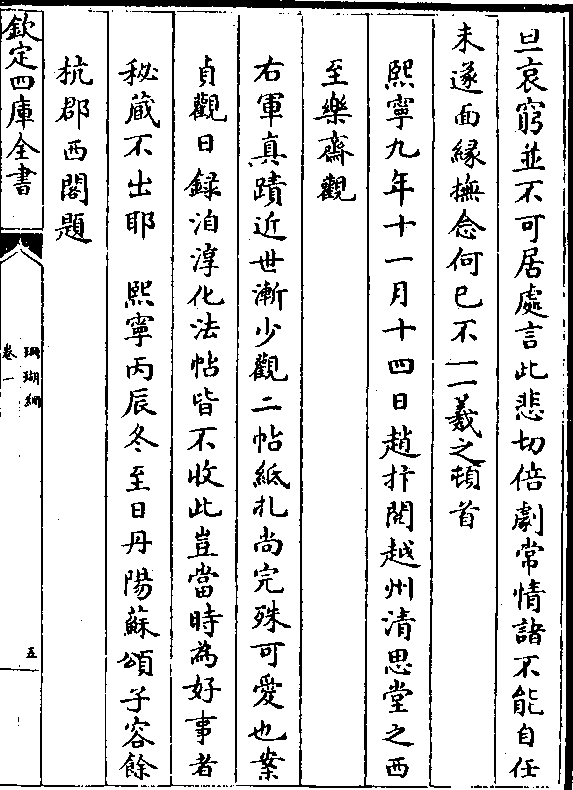 旦哀窮並不可居處言此悲切倍劇常情諸不能自任
未遂面縁撫念何已不一一羲之頓首
熙寧九年十一月十四日趙抃閱越州清思堂之西
至樂齋觀
右軍真蹟近世漸少觀二帖紙札尚完殊可愛也案
貞觀日録洎淳化法帖皆不收此豈當時為好事者
秘蔵不出耶　熙寧丙辰冬至日丹陽蘇頌子容餘
杭郡西閣題
欽定四庫全書
珊瑚網
卷一
五